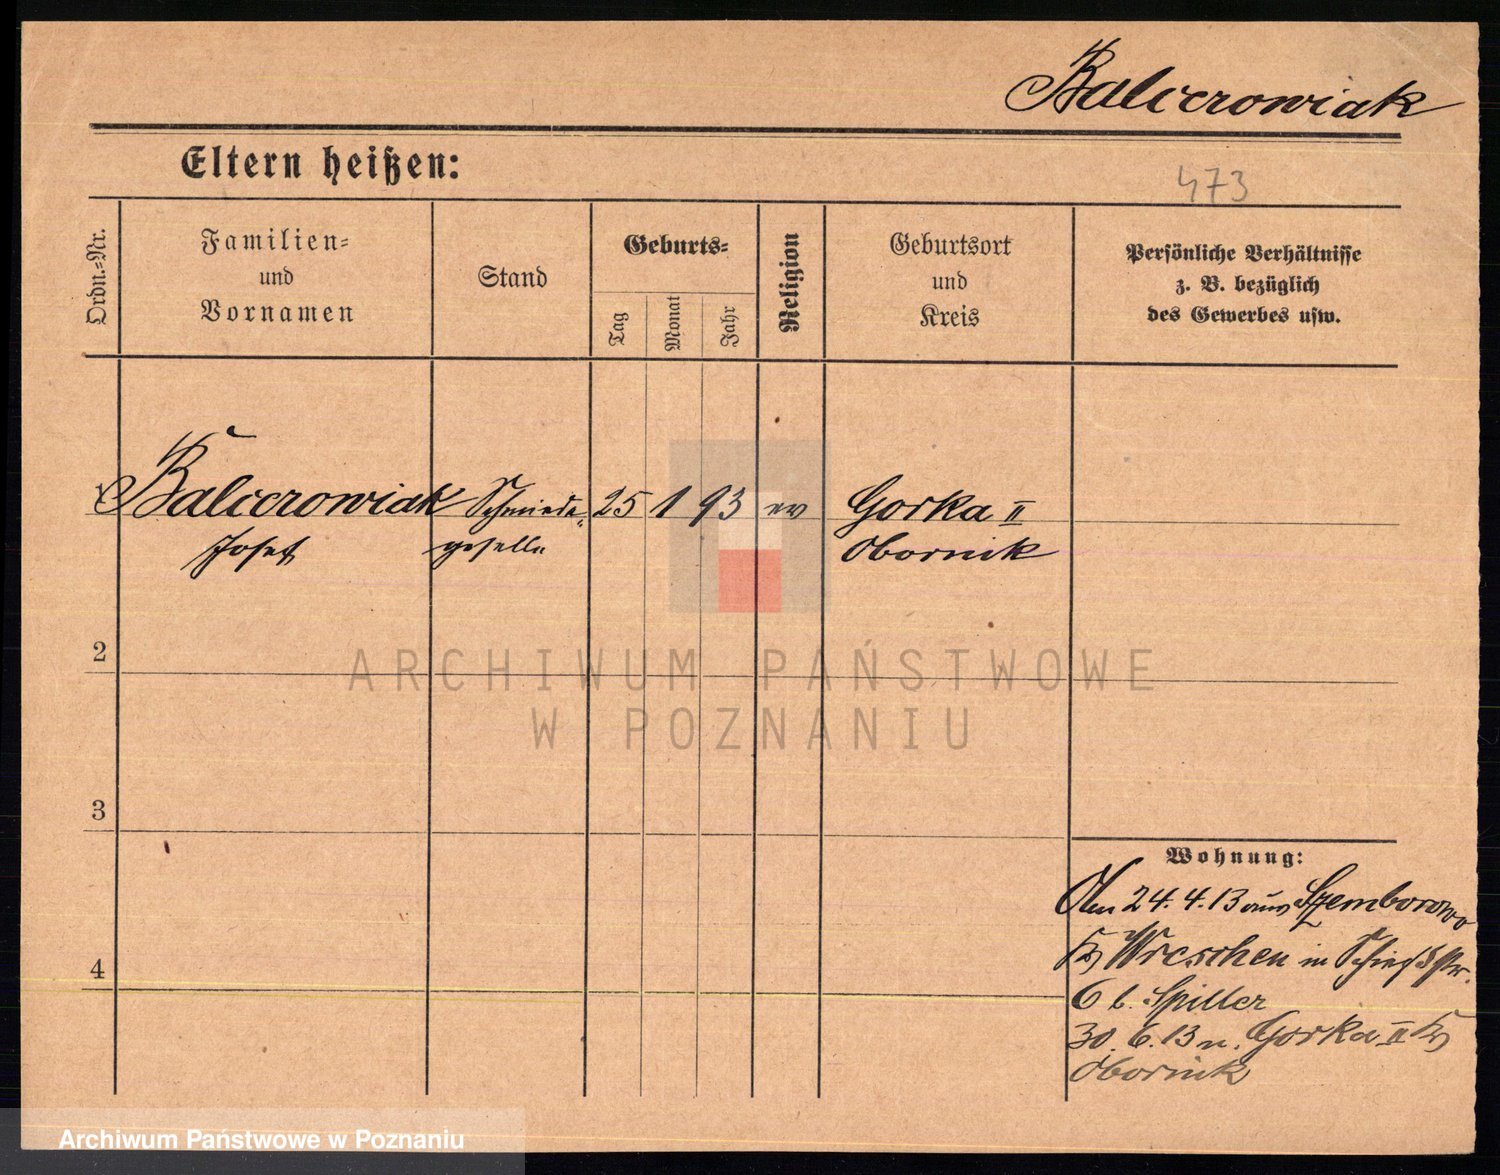 Balcerowiak
Eltern heißen:
473
Ordn.-Nr.
Familien-
und
Vornamen
Stand
Geburts-
Tag
Monat
Jahr
Religion
Geburtsort
und
Kreis
Persönliche Verhältnisse
z. B. bezüglich
des Gewerbes usw.
1 Balcerowiak Schmiede- 25 1 93 ev Gorka II
Josef geselle Obornik
2
3
4
Wohnung:
Am 24.4.13 aus Szemborowo
Kr Wreschen in Schießstr.
6 b. Spiller
30.6.13 n. Gorka II Kr
Obornik
ARCHIWUM PAŃSTWOWE
W POZNANIU
Archiwum Państwowe w Poznaniu